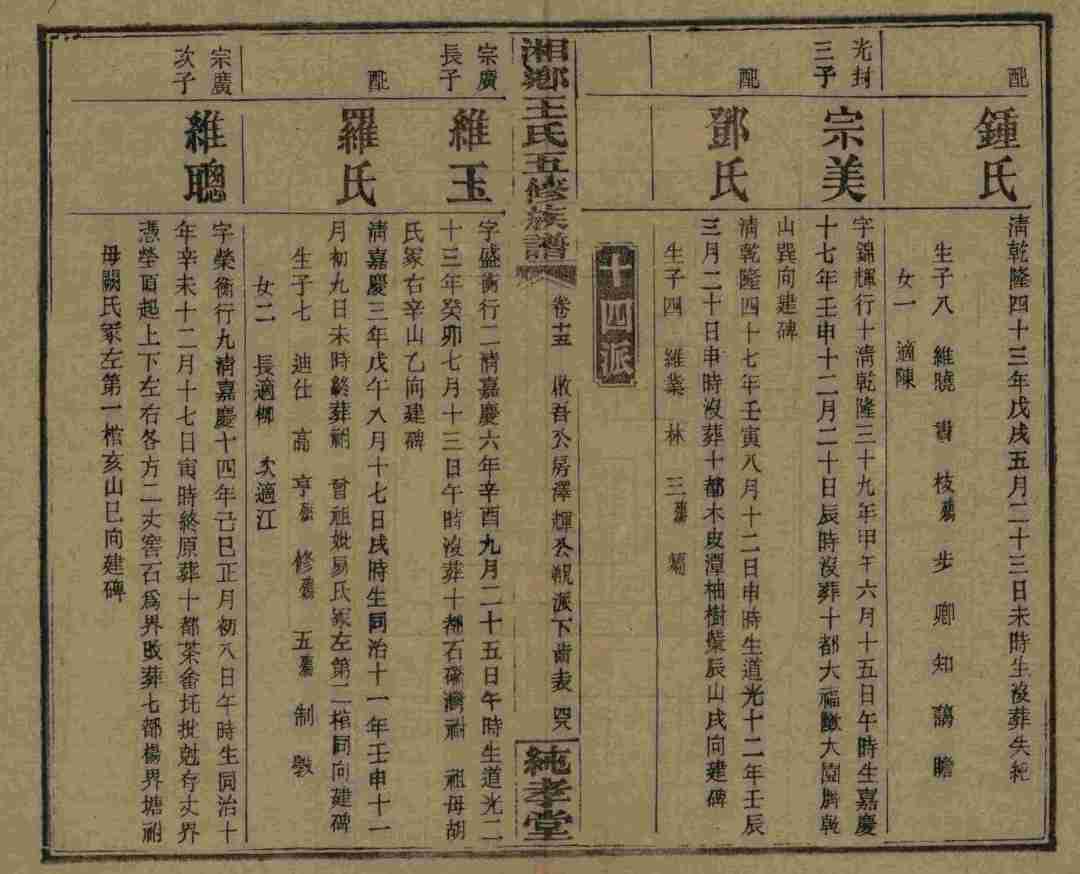 配
鍾氏
清乾隆四十三年戊戌五月二十三日未時生沒葬失紀
生子八 維曉 貴 枝殤 步 卿 知 謁 瞻
女一 適陳
光封三子
宗美
字錦輝行十清乾隆三十九年甲午六月十五日午時生嘉慶
十七年壬申十二月二十日辰時沒葬十都大福 大園 乾
山巽向建碑
配
鄧氏
清乾隆四十七年壬寅八月十二日申時生道光十二年壬辰
三月二十日申時沒葬十都木皮潭柚樹 辰山戌向建碑
生子四 維業 林 三殤 菊
十四派
湘鄉王氏五修族譜
卷十五 啟吾公房澤輝公 派下齒表
純孝堂
宗廣長子
維玉
字盛衡行二清嘉慶六年辛酉九月二十五日午時生道光二
十三年癸卯七月十三日午時沒葬十都石磜灣祔 祖母胡
氏冢右辛山乙向建碑
配
羅氏
清嘉慶三年戊午八月十七日戌時生同治十一年壬申十一
月初九日未時終葬祔 曾祖妣易氏冢左第二棺同向建碑
生子七 迪仕 高 亨殤 修殤 五殤 制 敭
女二 長適柳 次適江
宗廣次子
維聰
字榮衡行九清嘉慶十四年己巳正月初八日午時生同治十
年辛未十二月十七日寅時終原葬十都茶畬 批 存丈界
憑塋頂起上下左右各方二丈窖石為界改葬七都楊界塘祔
母關氏冢左第一棺亥山巳向建碑